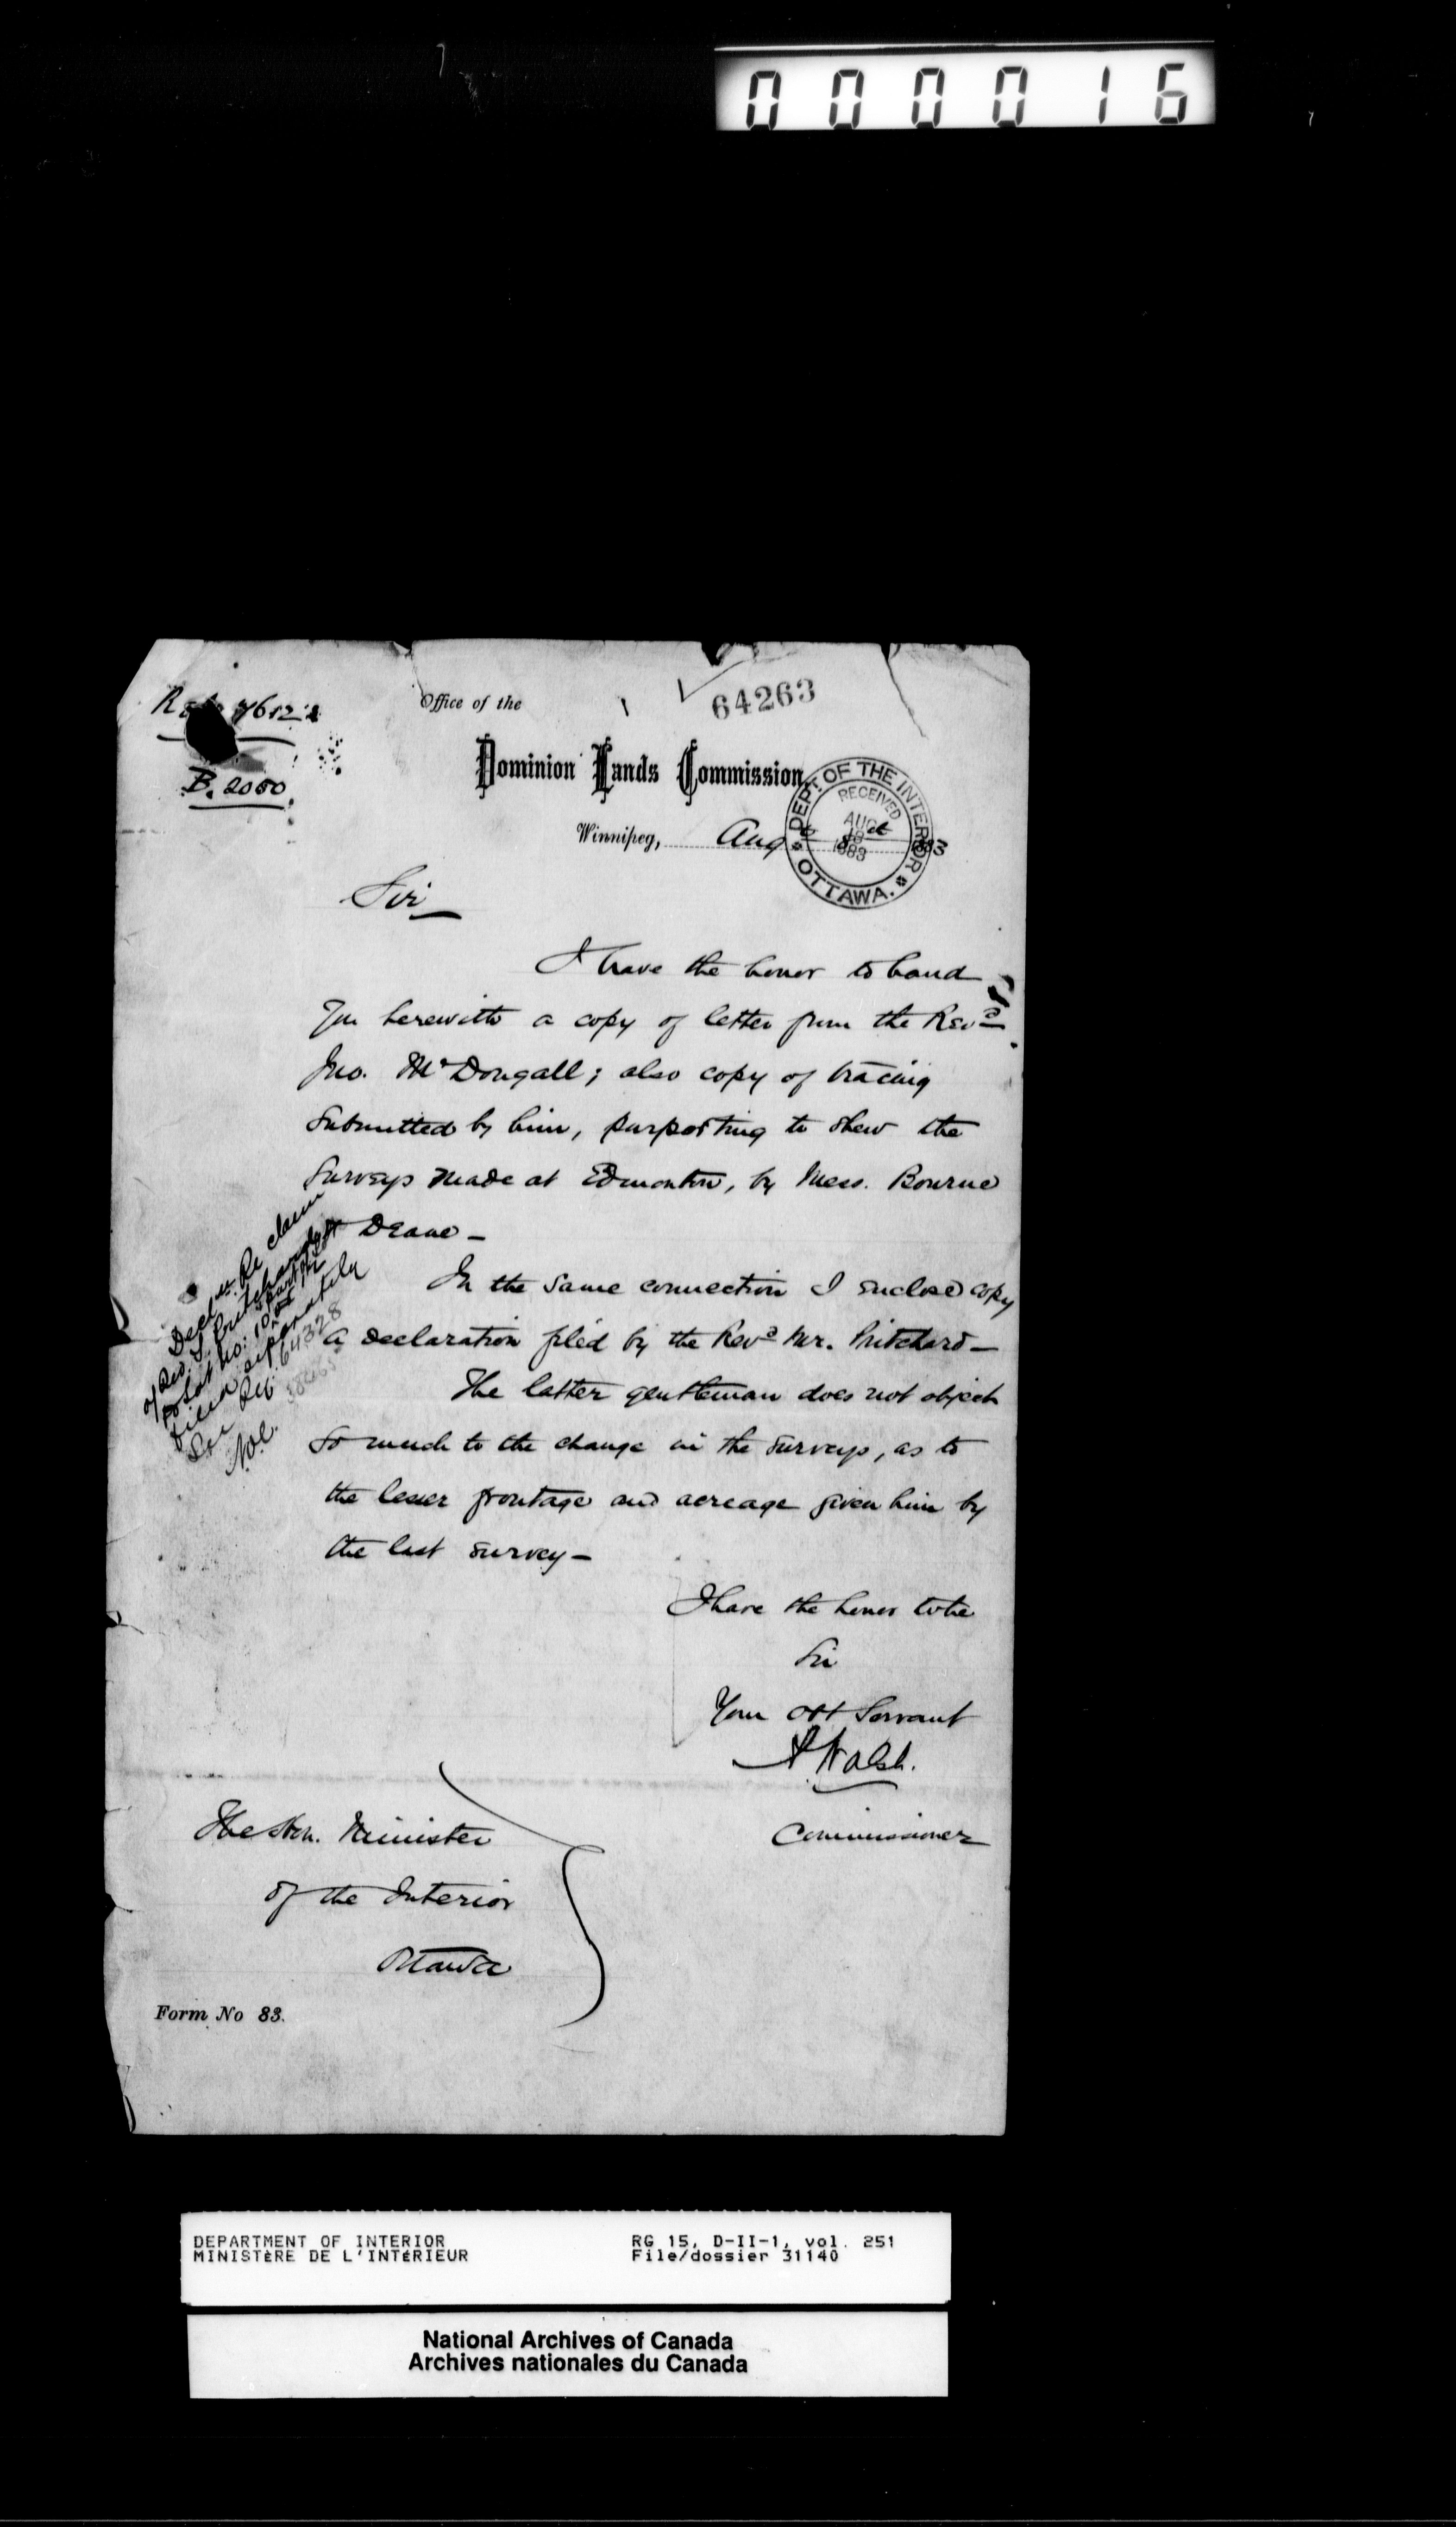 000016
64263
B. 2050
Office of the
Dominion Lands Commission,
Winnipeg, Aug
DEPT. OF THE INTERIOR
RECEIVED
AUG
1883
OTTAWA.
Sir
I have the honor to hand
you herewith a copy of letter from the Revd
Jno. McDougall; also copy of tracing
submitted by him, purporting to shew the
surveys made at Edmonton, by Mess. Bourne
& Deane –
In the same connection I enclose copy
a declaration filed by the Revd Mr. Pritchard –
The latter gentleman does not object
so much to the change in the surveys, as to
the lesser frontage and acreage given him by
the last survey –
Decln. Re claim
of Rev. S. Pritchard
to Lot No. 10
filed separately
See Ref. 64328
I have the honor to be
Sir
Your obt Servant
A Walsh.
Commissioner
The Hon. Minister
of the Interior
Ottawa
Form No 83.
DEPARTMENT OF INTERIOR
MINISTÈRE DE L'INTÉRIEUR
RG 15, D-II-1, vol. 251
File/dossier 31140
National Archives of Canada
Archives nationales du Canada